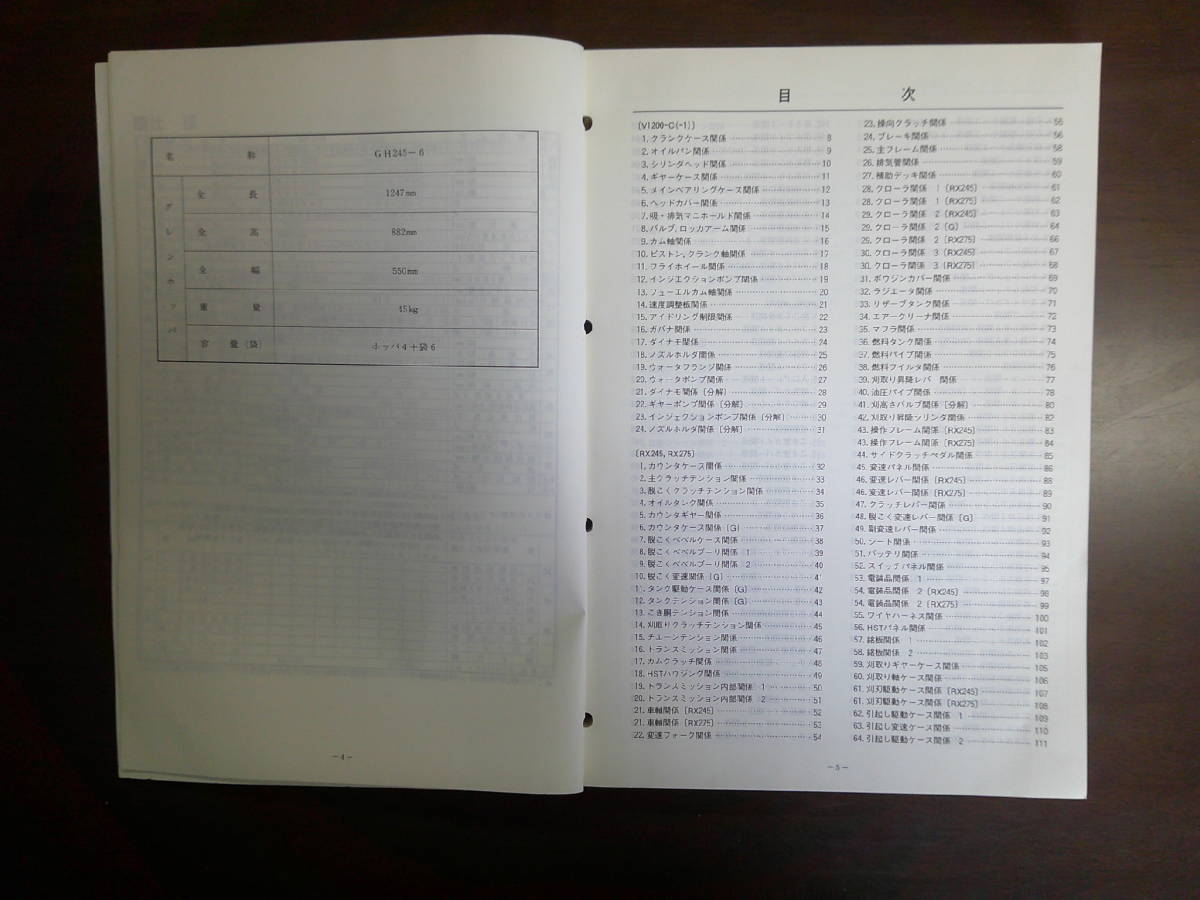 名 称 GH245-6
グレンホッパ
全 長 1247mm
全 高 882mm
全 幅 550mm
重 量 45kg
容 量(袋) ホッパ4+袋6
-4-
目 次
〔V1200-C(-1)〕
1. クランクケース関係 8
2. オイルパン関係 9
3. シリンダヘッド関係 10
4. ギヤーケース関係 11
5. メインベアリングケース関係 12
6. ヘッドカバー関係 13
7. 吸・排気マニホールド関係 14
8. バルブ, ロッカアーム関係 15
9. カム軸関係 16
10. ピストン, クランク軸関係 17
11. フライホイール関係 18
12. インジェクションポンプ関係 19
13. フューエルカム軸関係 20
14. 速度調整板関係 21
15. アイドリング制限関係 22
16. ガバナ関係 23
17. ダイナモ関係 24
18. ノズルホルダ関係 25
19. ウォータフランジ関係 26
20. ウォータポンプ関係 27
21. ダイナモ関係〔分解〕 28
22. ギヤーポンプ関係〔分解〕 29
23. インジェクションポンプ関係〔分解〕 30
24. ノズルホルダ関係〔分解〕 31
〔RX245, RX275〕
1. カウンタケース関係 32
2. 主クラッチテンション関係 33
3. 脱こくクラッチテンション関係 34
4. オイルタンク関係 35
5. カウンタギヤー関係 36
6. カウンタケース関係〔G〕 37
7. 脱こくベベルケース関係 38
8. 脱こくベベルプーリ関係 1 39
9. 脱こくベベルプーリ関係 2 40
10. 脱こく変速関係〔G〕 41
11. タンク駆動ケース関係〔G〕 42
12. タンクテンション関係〔G〕 43
13. こき胴テンション関係 44
14. 刈取りクラッチテンション関係 45
15. チェーンテンション関係 46
16. トランスミッション関係 47
17. カムクラッチ関係 48
18. HSTハウジング関係 49
19. トランスミッション内部関係 1 50
20. トランスミッション内部関係 2 51
21. 車軸関係〔RX245〕 52
21. 車軸関係〔RX275〕 53
22. 変速フォーク関係 54
23. 操向クラッチ関係 55
24. ブレーキ関係 56
25. 主フレーム関係 58
26. 排気管関係 59
27. 補助デッキ関係 60
28. クローラ関係 1〔RX245〕 61
28. クローラ関係 1〔RX275〕 62
29. クローラ関係 2〔RX245〕 63
29. クローラ関係 2〔G〕 64
29. クローラ関係 2〔RX275〕 66
30. クローラ関係 3〔RX245〕 67
30. クローラ関係 3〔RX275〕 68
31. ボウジンカバー関係 69
32. ラジエータ関係 70
33. リザーブタンク関係 71
34. エアークリーナ関係 72
35. マフラ関係 73
36. 燃料タンク関係 74
37. 燃料パイプ関係 75
38. 燃料フイルタ関係 76
39. 刈取り昇降レバ 関係 77
40. 油圧パイプ関係 78
41. 刈高さバルブ関係〔分解〕 80
42. 刈取り昇降シリンダ関係 82
43. 操作フレーム関係〔RX245〕 83
43. 操作フレーム関係〔RX275〕 84
44. サイドクラッチペダル関係 85
45. 変速パネル関係 86
46. 変速レバー関係〔RX245〕 88
46. 変速レバー関係〔RX275〕 89
47. クラッチレバー関係 90
48. 脱こく変速レバー関係〔G〕 91
49. 副変速レバー関係 92
50. シート関係 93
51. バッテリ関係 94
52. スイッチパネル関係 95
53. 電装品関係 1 97
54. 電装品関係 2〔RX245〕 98
54. 電装品関係 2〔RX275〕 99
55. ワイヤハーネス関係 100
56. HSTパネル関係 101
57. 銘板関係 1 102
58. 銘板関係 2 103
59. 刈取りギヤーケース関係 105
60. 刈取り軸ケース関係 106
61. 刈刃駆動ケース関係〔RX245〕 107
61. 刈刃駆動ケース関係〔RX275〕 108
62. 引起し駆動ケース関係 1 109
63. 引起し変速ケース関係 110
64. 引起し駆動ケース関係 2 111
-5-